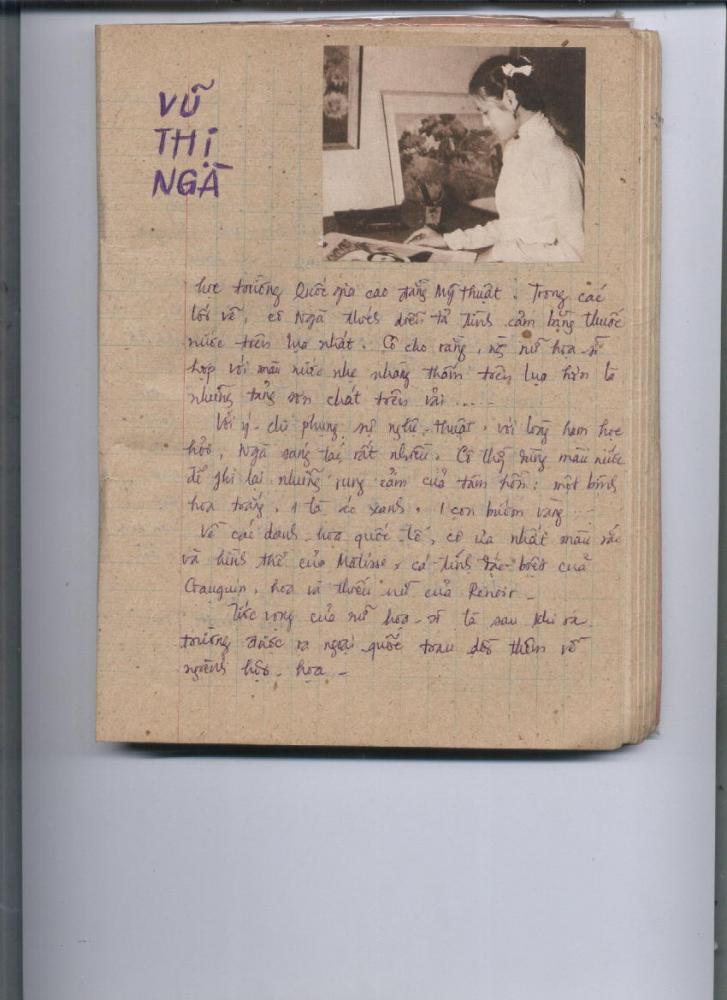 VŨ
THỊ
NGÀ
học trường Quốc gia cao đẳng Mỹ thuật. Trong các
lối vẽ, cô Ngà thích diễn tả tình cảm bằng thuốc
nước trên lụa nhất. Cô cho rằng, nữ họa-sĩ
hợp với màu nước nhẹ nhàng thấm trên lụa hơn là
những tảng sơn chát trên vải ....
Với ý-chí phụng sự nghệ-thuật, với lòng ham học
hỏi, Ngà sáng tác rất nhiều. Cô thg dùng màu nước
để ghi lại những rung cảm của tâm hồn: một bông
hoa trắng, 1 lá úa xanh, 1 con bướm vàng ...
Về các danh-họa quốc tế, cô ưa nhất màu sắc
và hình thể của Matisse, cá tính đặc-biệt của
Gauguin, hoa và thiếu nữ của Renoir -
Ước vọng của nữ họa-sĩ là sau khi ra
trường được ra ngoại-quốc trau dồi thêm về
ngành hội-họa -